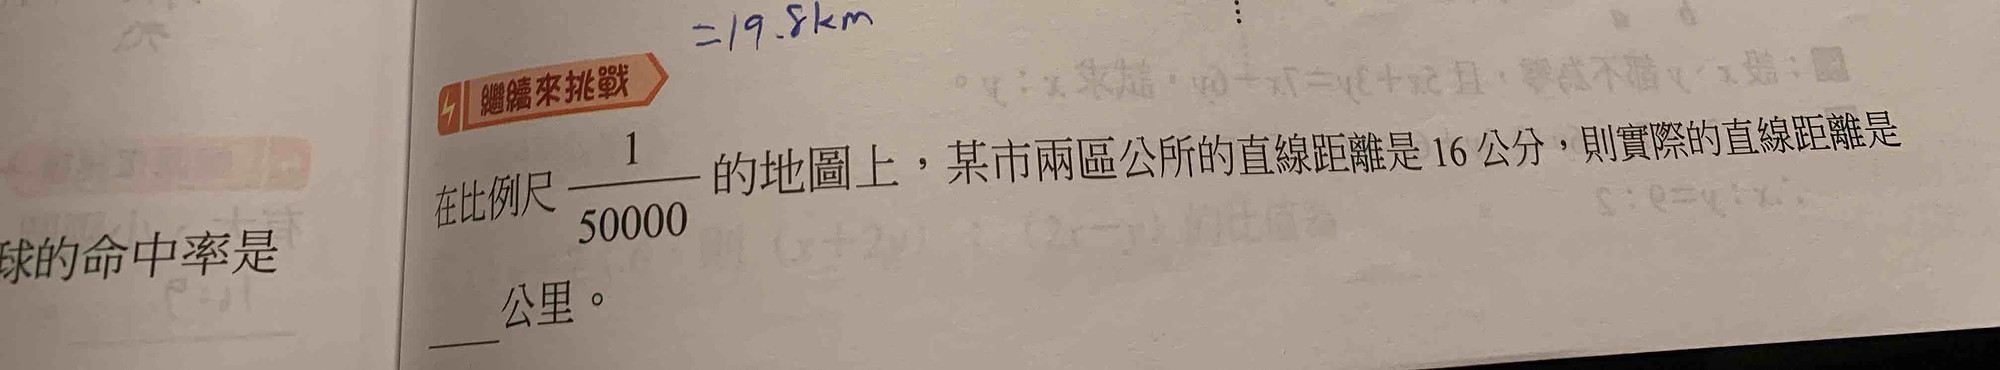 =19.8km
繼續來挑戰
在比例尺 1/50000 的地圖上，某市兩區公所的直線距離是 16 公分，則實際的直線距離是
公里。
球的命中率是